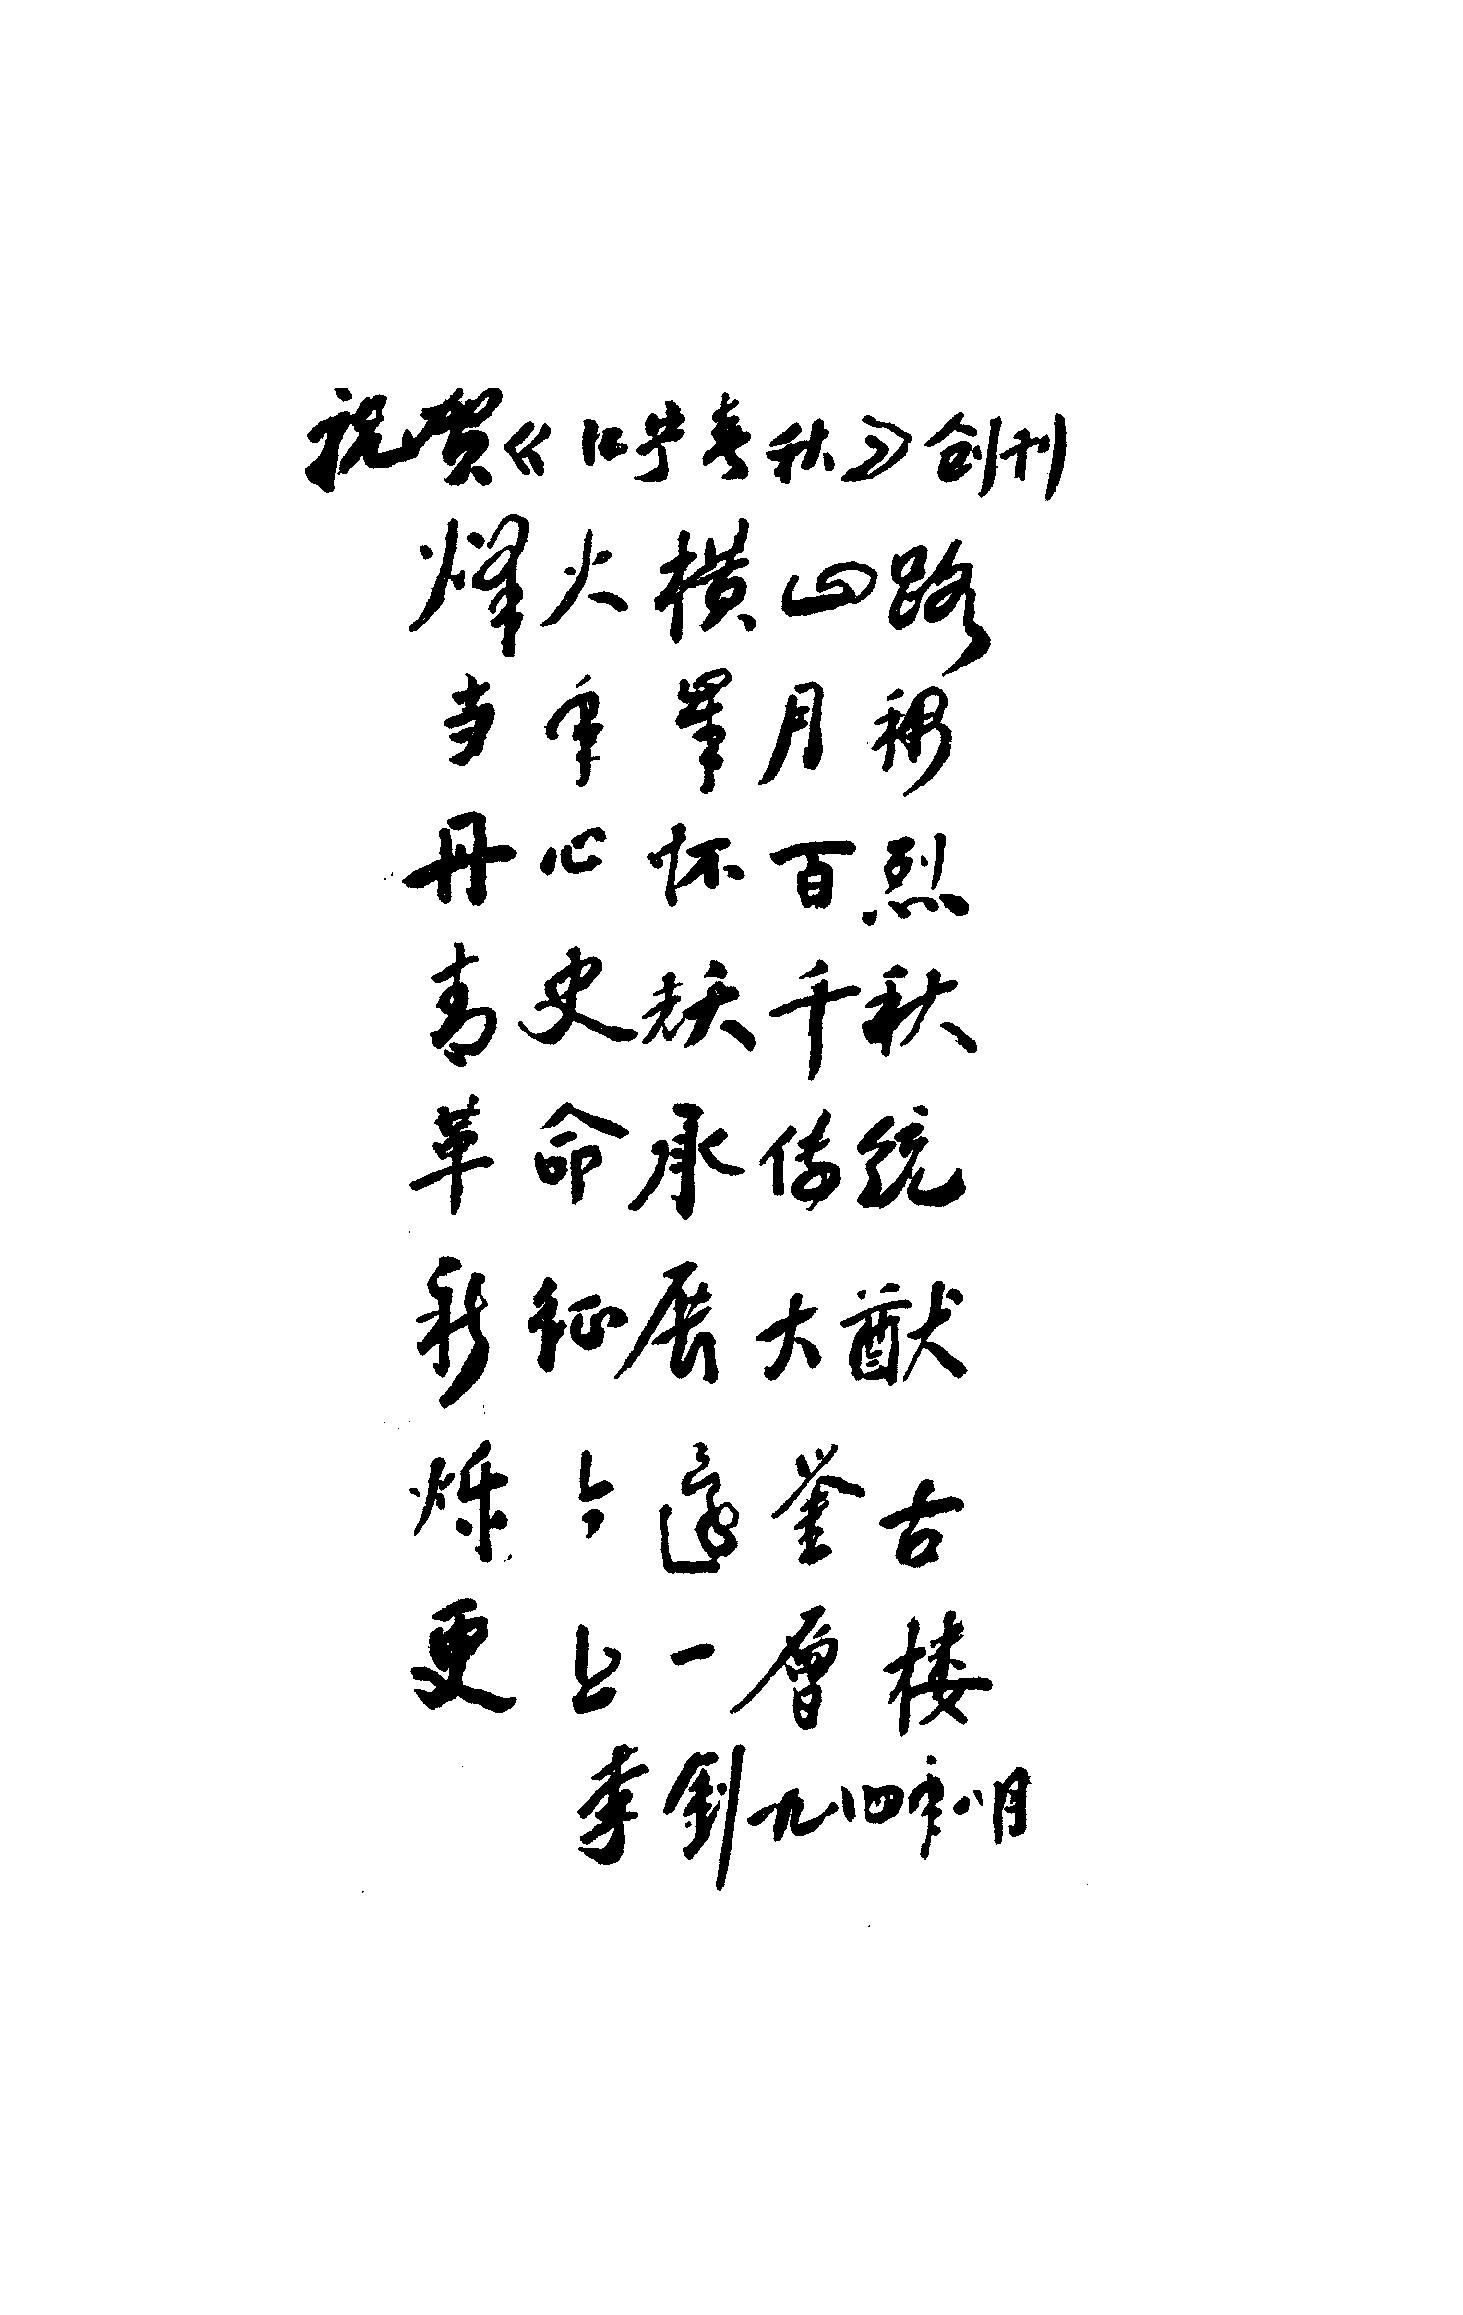 祝贺《江宁春秋》创刊
烽火横山路
当年 月稠
丹心怀百烈
青史耀千秋
革命承传统
新征展大猷
烁今 鉴古
更上一层楼
李钊九四年八月